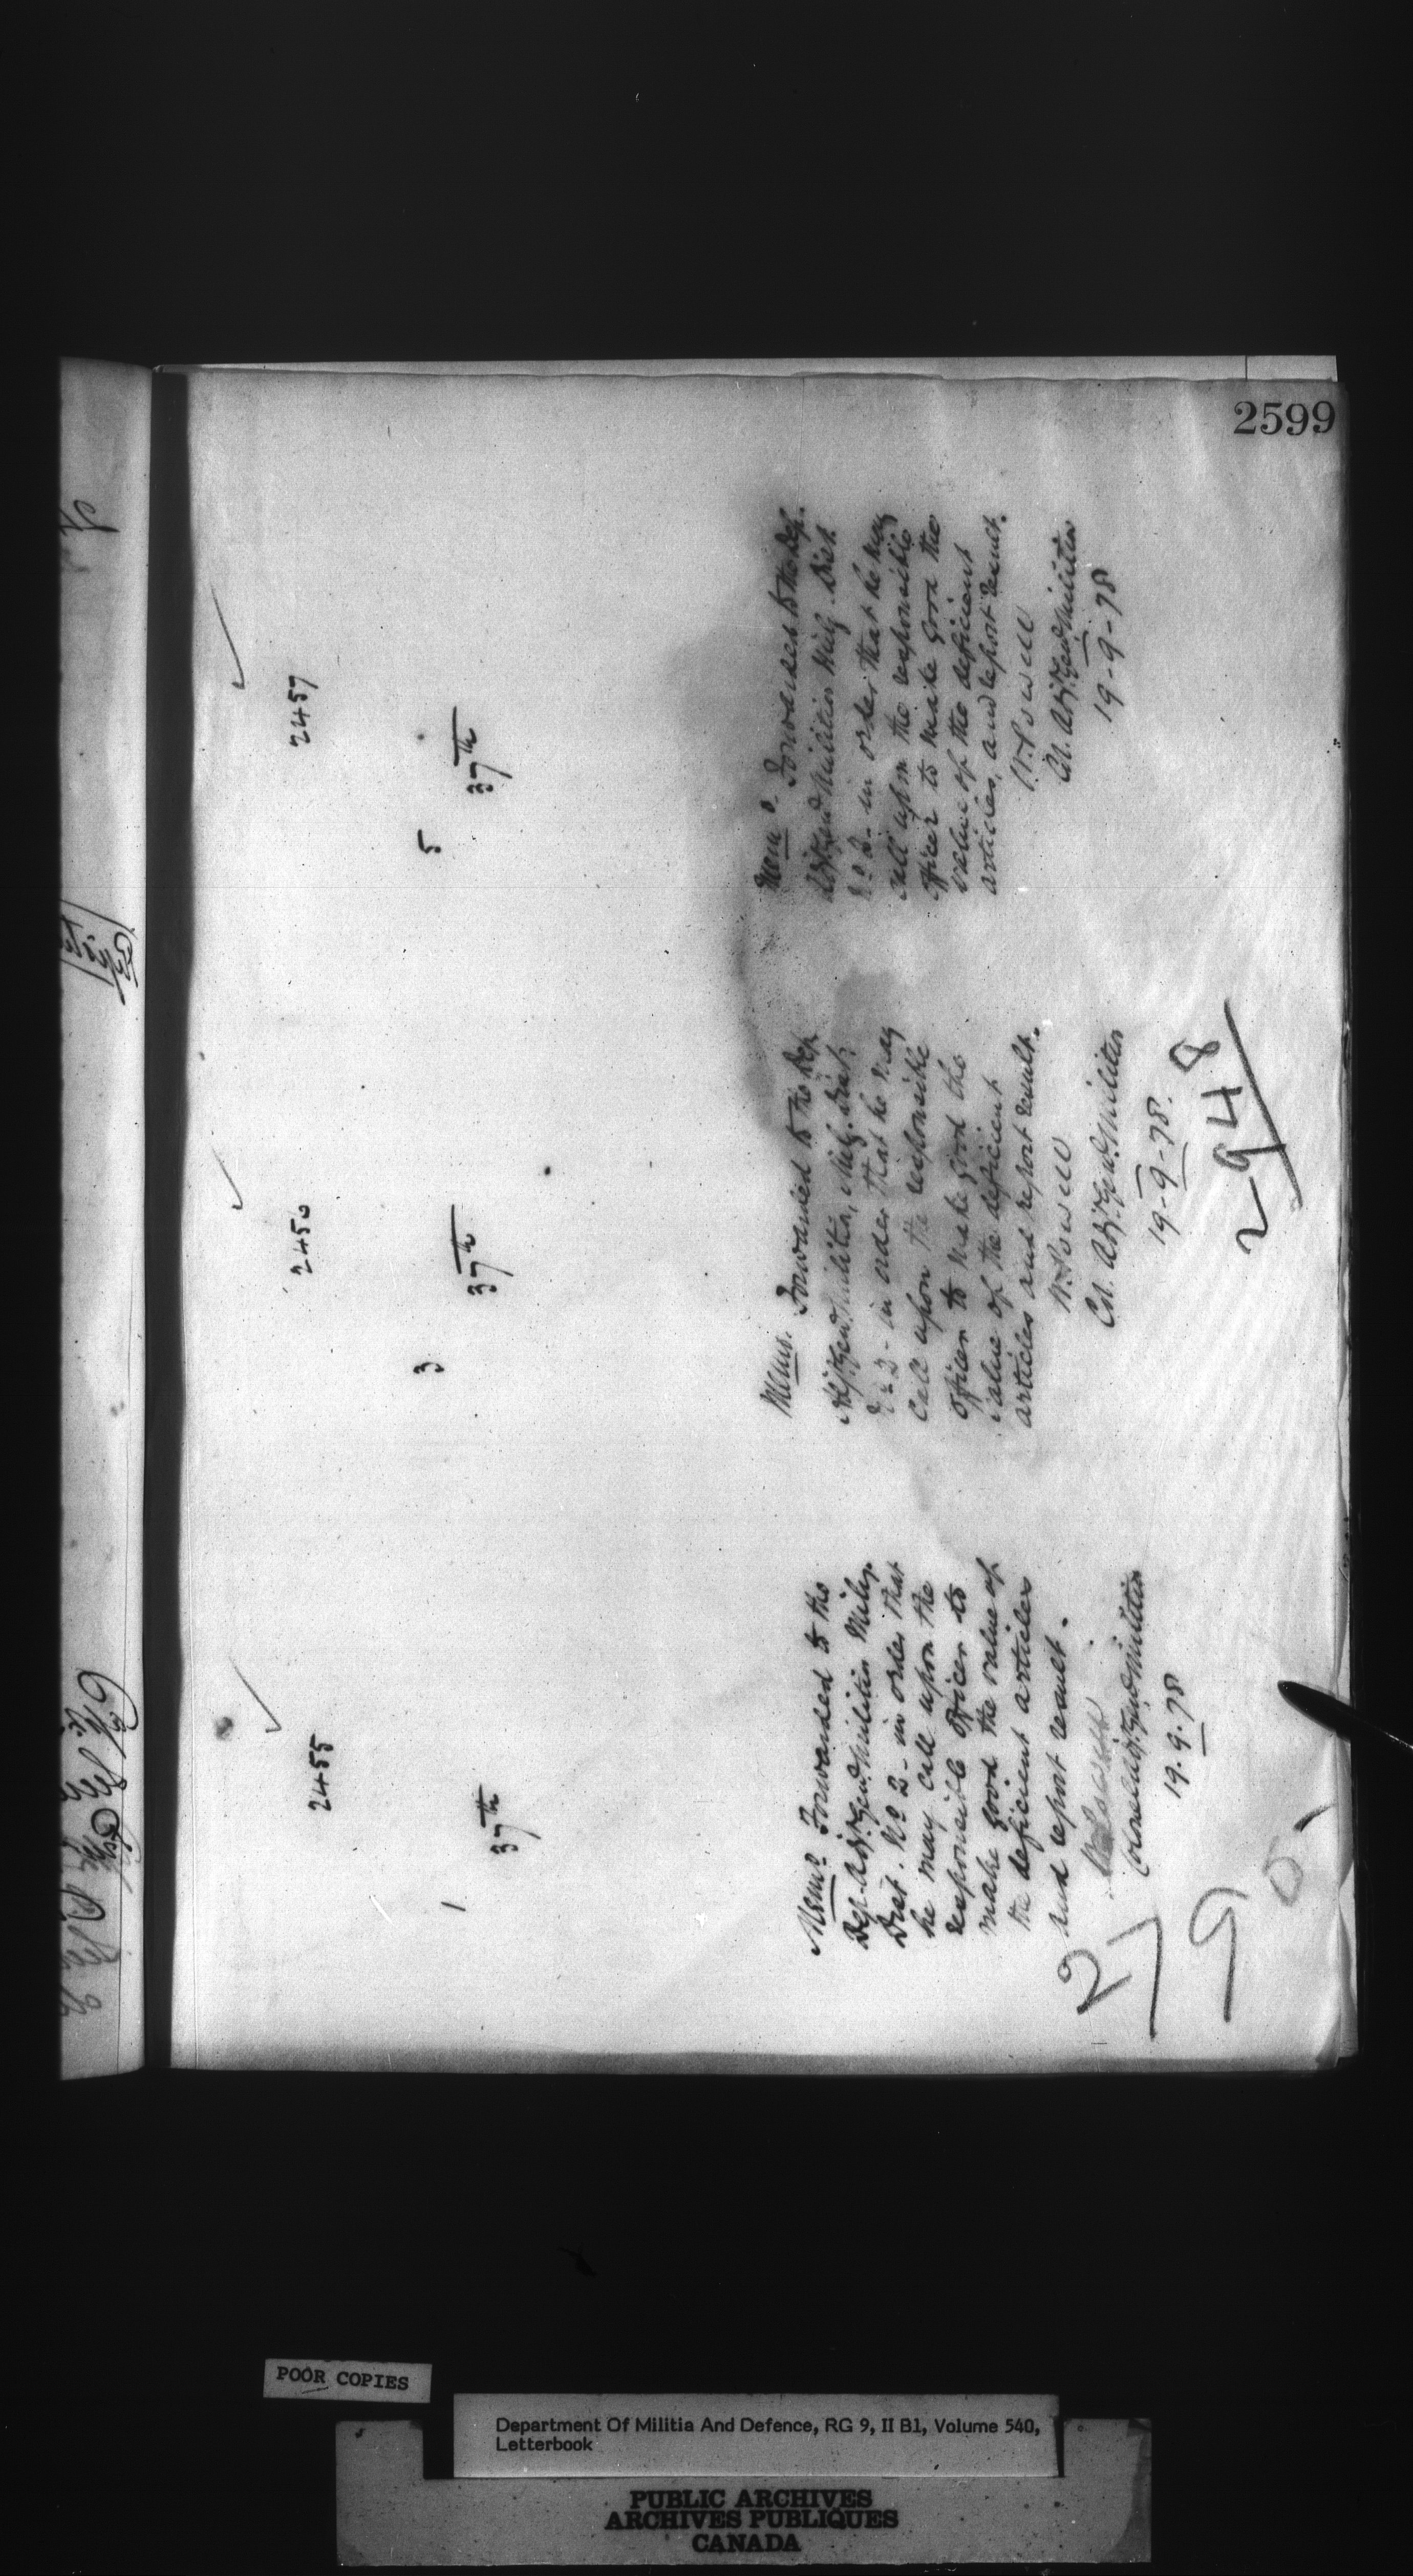 2599
2455
1
37th
Memo Forwarded to the
Dep. Adjt. Genl. Militia Mily.
Dist. No 2 - in order that
he may call upon the
responsible officer to
make good the value of
the deficient articles
and report result.
W Powell
Colonel Adjt. Genl. Militia
19.9.78
2795
2450
3
37th
Memo. Forwarded to the Dep.
Adjt. Genl. Militia, Mily. Dist.
No 2 - in order that he may
call upon the responsible
officer to make good the
value of the deficient
articles and report result.
W. Powell
Col. Adjt. Genl. Militia
19-9-78.
2948
2457
5
37th
Memo. Forwarded to the Dep.
Adjt. Genl Militia Mily. Dist
No 2. in order that he may
call upon the responsible
officer to make good the
value of the deficient
articles, and report result.
W. Powell
Col. Adjt. Genl Militia
19-9-78
POOR COPIES
Department Of Militia And Defence, RG 9, II B1, Volume 540,
Letterbook
PUBLIC ARCHIVES
ARCHIVES PUBLIQUES
CANADA